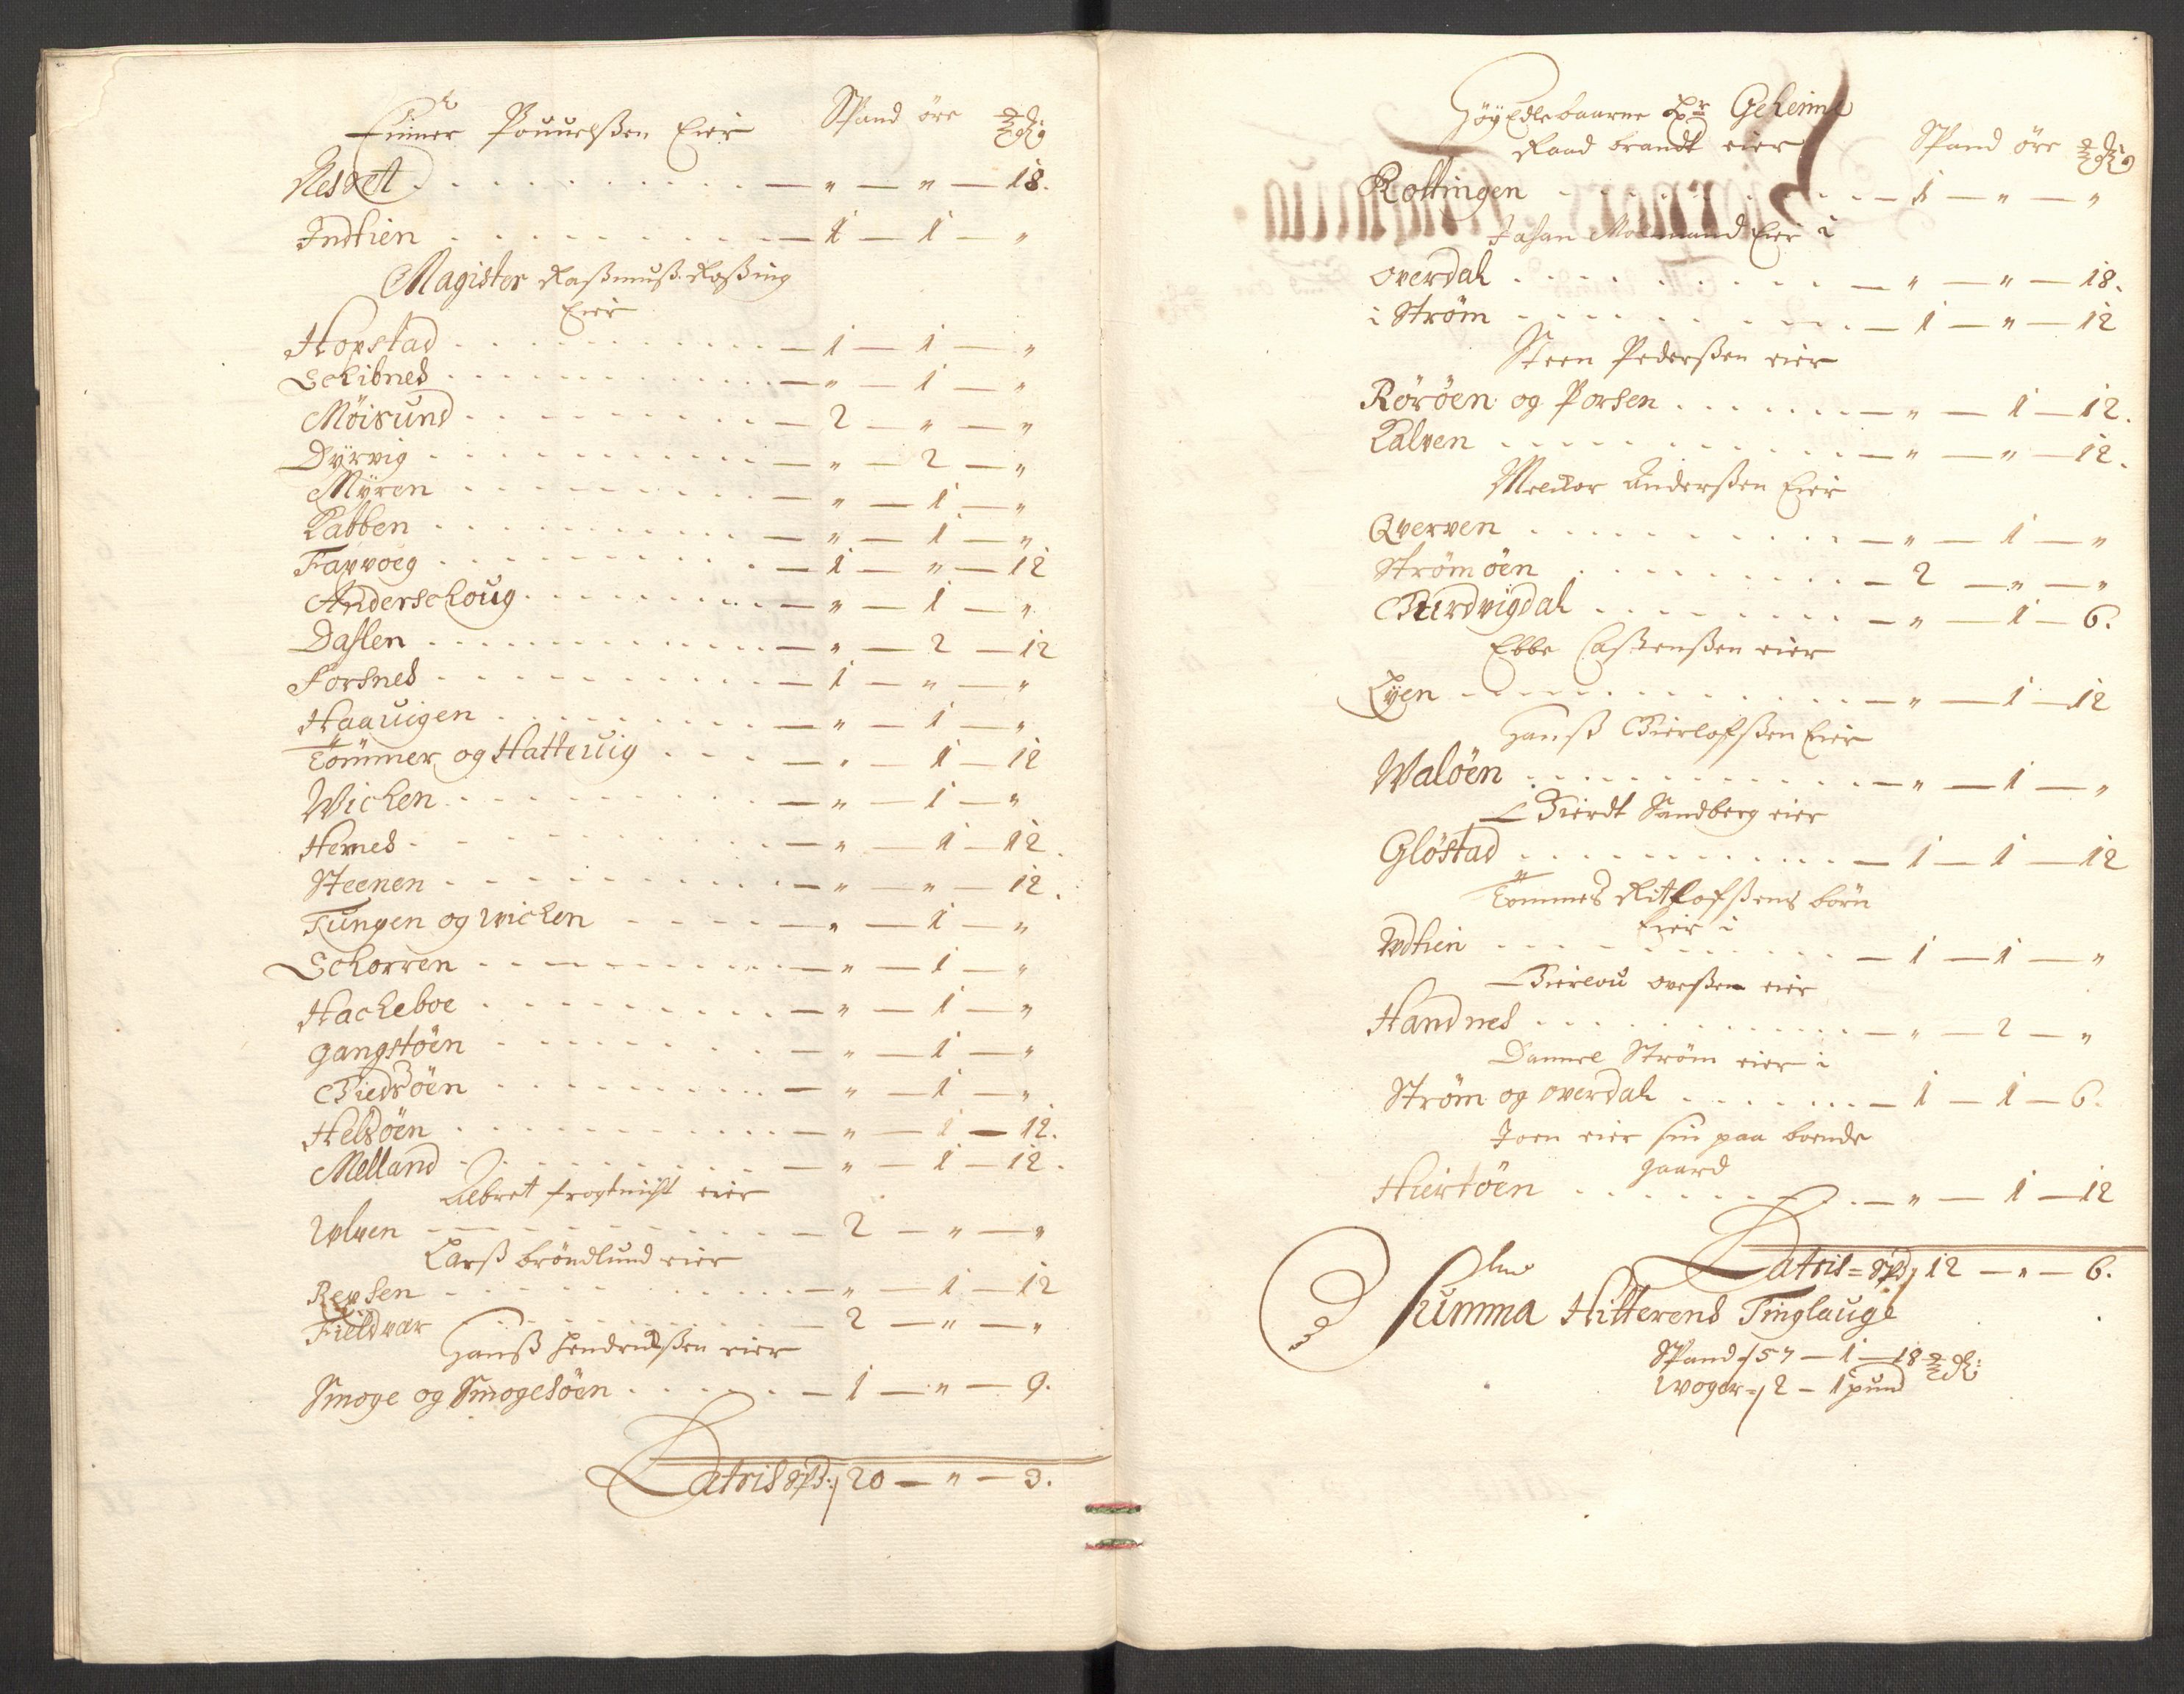 Einer Pouuelßen Eier Spand öre
Nesset — " — " — 18.
Indtien — 1 — 1 — "
Magister Raßmuß Roßing
Eier
Hopstad — 1 — 1 — "
Schibnes — " — 1 — "
Möisund — 2 — " — "
Dÿrvig — " — 2 — "
Mÿren — " — 1 — "
Kabben — " — 1 — "
Favvoeg — 1 — " — 12
Anderschoug — " — 1 — "
Daslen — " — 2 — 12
Forsnes — 1 — " — "
Haauigen — " — 1 — "
Tömmer og Hatteuig — " — 1 — 12
Wichen — " — 1 — "
Hernes — " — 1 — 12.
Steenen — " — " — 12.
Tungen og wichen — " — 1 — "
Schorren — " — 1 — "
Hacheboe — " — 1 — "
Gangstöen — " — 1 — "
Giedsöen — " — 1 — "
Helsöen — " — 1 — 12.
Melland — " — 1 — 12.
Albret frogtnicht eier
Ulven — 2 — " — "
Larß bröndlund eier
Repsen — " — 1 — 12
Fieldvær — 2 — " — "
Hanß Hendrichßen eier
Smoge og Smogesöen — 1 — " — 9.
Latris spd: 20 — " — 3.
Höÿ Edlebaarne Hr Geheime
Raad brandt eier Spand öre
Kottingen — 1 — " — "
Johan Mölmand Eier i
overdal — " — " — 18.
i Ström — 1 — " — 12
Steen Pederßen eier
Röröen og Porsen — " — 1 — 12.
Kalven — " — " — 12.
Melchior Anderßen Eier
Qverven — " — 1 — "
Strömöen — 2 — " — "
Burdvigdal — " — 1 — 6.
Ebbe Caßtenßen eier
Lÿen — " — 1 — 12
Hanß Gierlofßen Eier
Walöen — " — 1 — "
Gierdt Sandberg eier
Glöstad — 1 — 1 — 12
Tommes Ritlofßens börn
Eier i
Udtien — 1 — 1 — "
Giertou oveßen eier
Handnes — " — 2 — "
Daniel Ström eier i
Ström og overdal — 1 — 1 — 6.
Joen eier sin paa boende
gaard
Hiertöen — " — 1 — 12
Latris = spd 12 — " — 6.
Summa Hitterens Tinglauge
Spand 57 — 1 — 18
woger = 2 — 1 pund